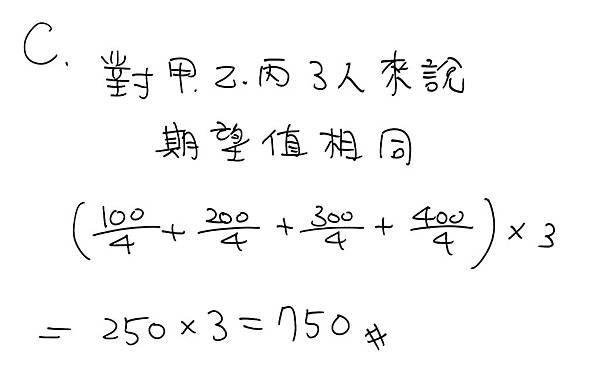 C. 對甲.乙.丙3人來說
期望值相同
(100/4 + 200/4 + 300/4 + 400/4) × 3
= 250 × 3 = 750 #